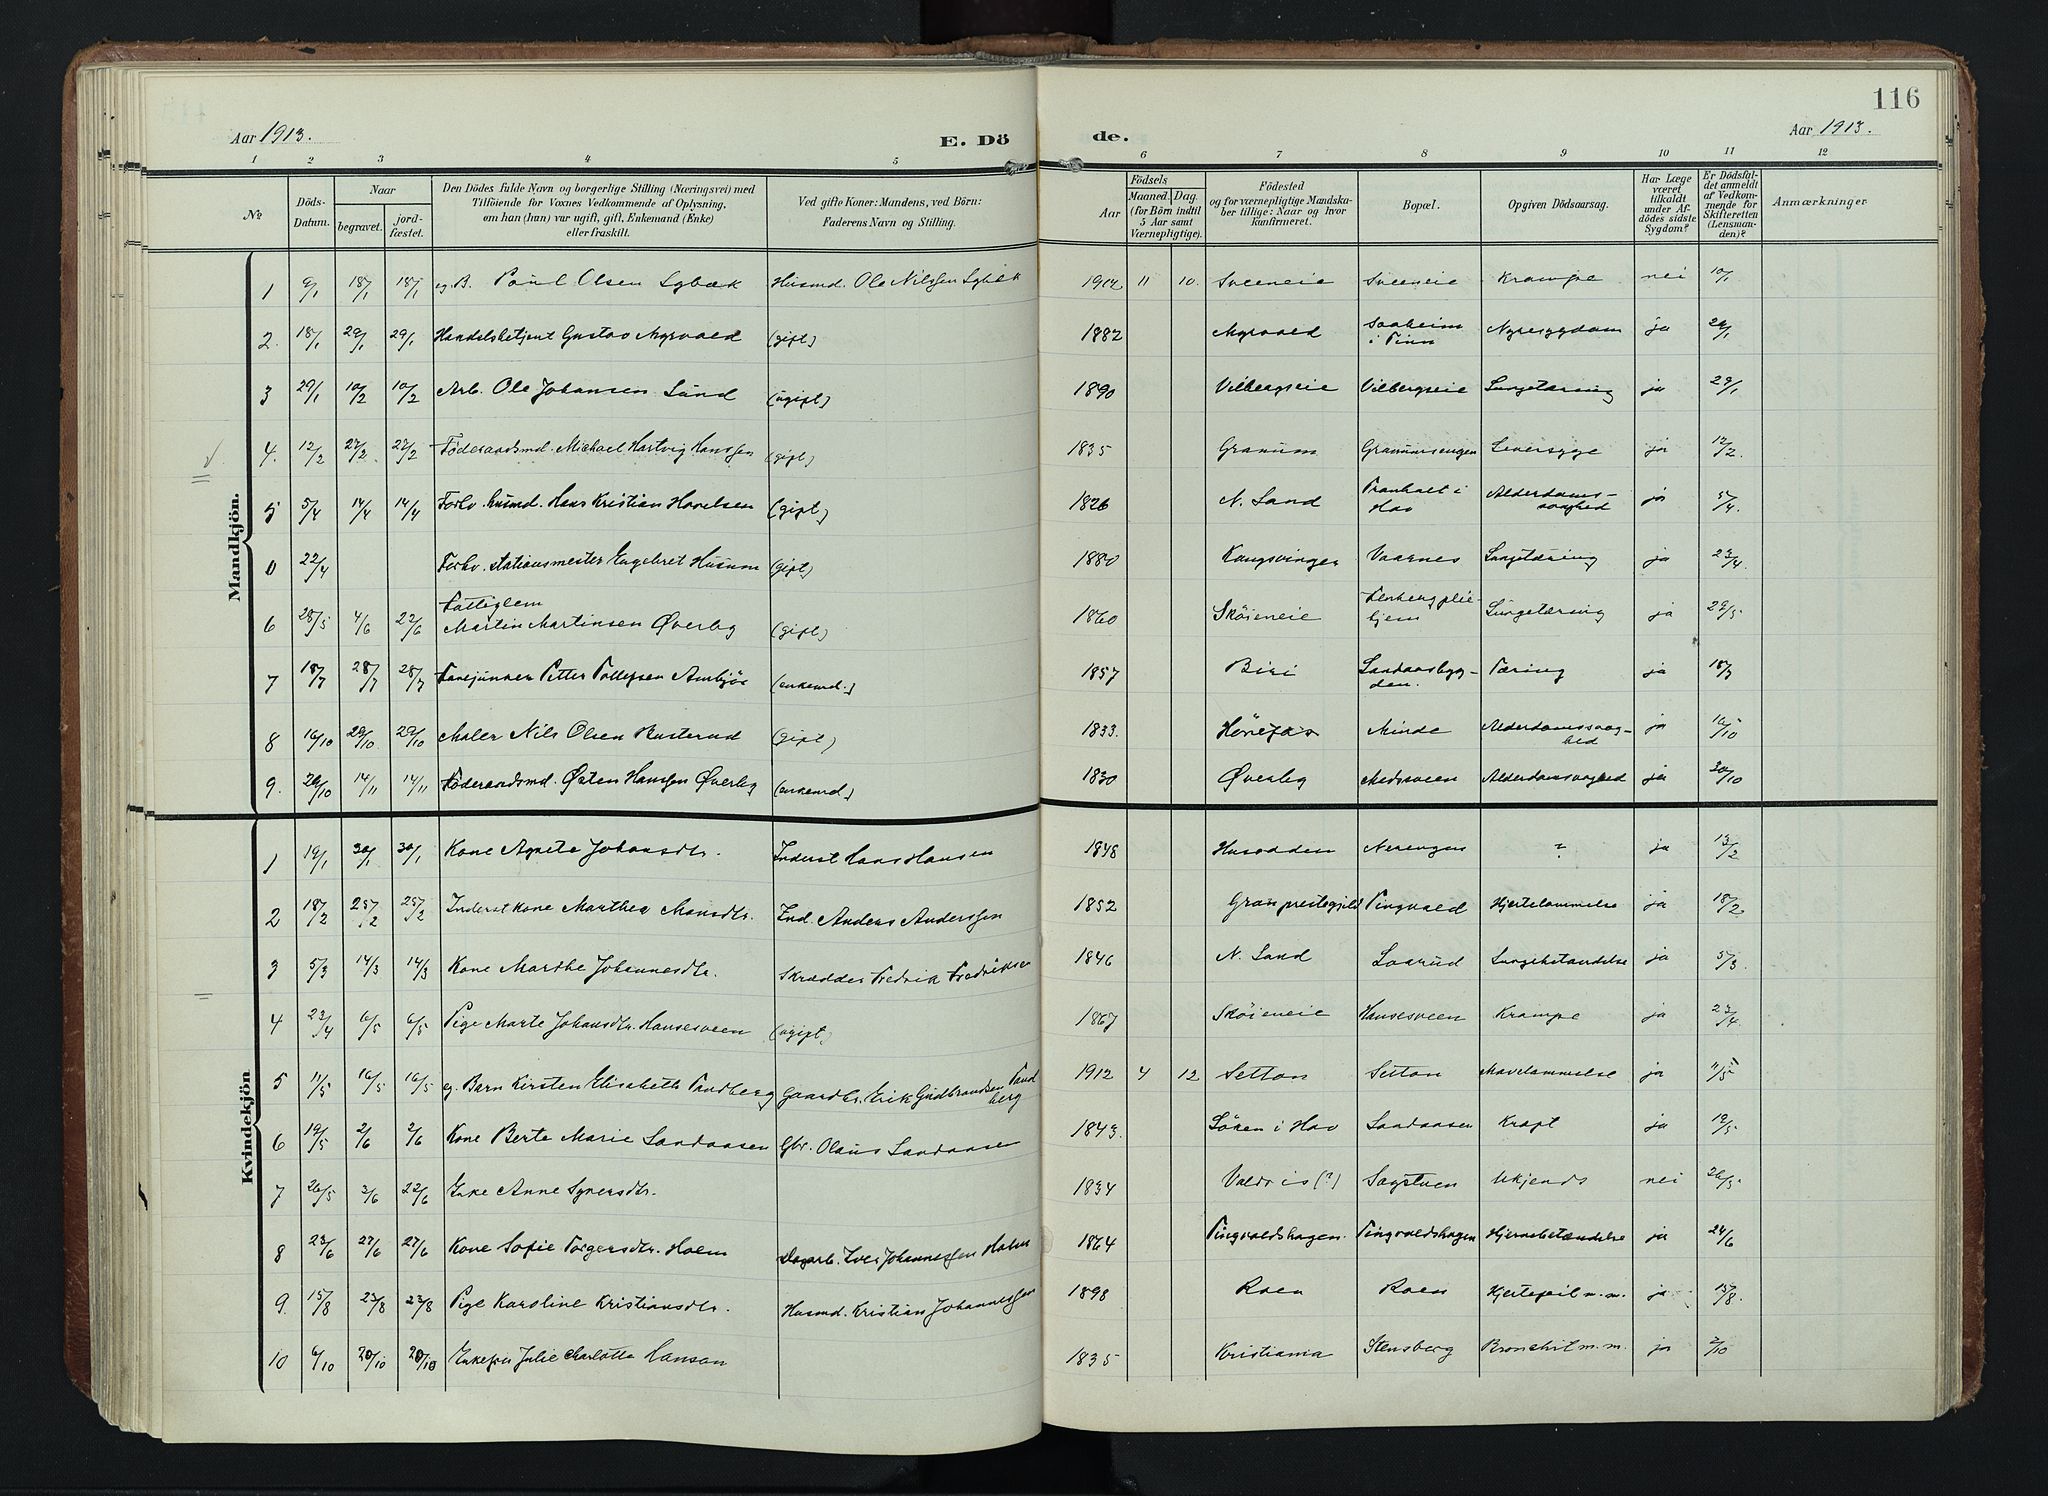 116
Aar 1913.
E. Dö
de.
Aar 1913.
1 2 3 4 5 6 7 8 9 10 11 12
№
Döds-
Datum.
Naar
begravet.
jord-
fæstet.
Den Dödes fulde Navn og borgerlige Stilling (Næringsvei) med
Tilföiende for Voxnes Vedkommende af Oplysning,
om han (hun) var ugift, gift, Enkemand (Enke)
eller fraskilt.
Ved gifte Koner: Mandens, ved Börn:
Faderens Navn og Stilling.
Födsels
Aar
Maaned. Dag.
(for Börn indtil
5 Aar samt
Værnepligtige).
Födested
og for værnepligtige Mandska-
ber tillige: Naar og hvor
konfirmeret.
Bopæl.
Opgiven Dödsaarsag.
Har Læge
været
tilkaldt
under Af-
dödes sidste
Sygdom?
Er Dödsfal-
det anmeldt
af Vedkom-
mende for
Skifteretten
(Lensman-
den)?
Anmærkninger
Mandkjön.
1 9/1 18/1 18/1 eg. B. Paul Olsen Lybæk Husmd. Ole Nilssen Lybæk 1912 11 10. Sveeneie Sveeneie Krampe nei 10/1
2. 18/1 29/1 29/1 Handelsbetjent Gustav Myrvold (gift) 1882 Myrvold Saaheim i Tinn Nyresygdom ja 29/1
3 29/1 10/2 10/2 Arb. Ole Johansen Lund (ugift) 1890 Vilbergseie Vilbergseie Lungetæring ja 29/1
4. 12/2 27/2 27/2 Föderaadsmd. Michael Hartvig Hanssen (gift) 1835 Granum Granumsengen Leversyge ja 12/2.
5 5/4 14/4 14/4 Forhv. husmd. Hans Kristian Hovelsen (gift) 1826 N. Land Tranholt i Hov Alderdoms-svaghed ja 5/4.
0 22/4 Forhv. stationsmester Engebret Husum (gift) 1880 Kongsvinger Vaarnes Lungetæring ja 23/4.
6 28/5 4/6 22/6 Fattiglem Martin Martinsen Øverby (gift) 1860 Skøieneie Lungetæring ja 29/5
7 18/7 28/7 28/7 Petter Tollefsen (enkemd.) 1857 Biri Landaasbyg-den. Tæring ja 18/7
8 16/10 29/10 29/10 Maler Nils Olsen Busterud (gift) 1833. Hönefos Minde Alderdomssvag-hed ja 16/10
9. 29/10 14/11 14/11 Föderaadsmd. Østen Hanssen Øverby (enkemd.) 1830 Øverby Medsveen Alderdomssvaghed ja 30/10
Kvindekjön
1 19/1 30/1 30/1 Kone Agnete Johansdtr. Inderst Hans Hansen 1848 Husodden Nerengen ? ja 13/2
2 18/2 25/2 25/2 Inderst kone Marthea Monsdtr. Ind. Anders Anderssen 1852 Gran prestegjeld Tingvold Hjertelammelse ja 18/2.
3 5/3 14/3 14/3 Kone Marthe Johannesdtr. Skrædder Fredrik Fredriksen 1846 N. Land Loarud Lungebetændelse ja 5/3.
4 23/4 6/5 6/5 Pige Marte Johansdtr. Hansesveen (ugift) 1867 Skøieneie Hansesveen Krampe ja 23/4.
5 11/5 16/5 16/5 eg. Barn Kirsten Elisabeth Tandberg Gaardbr. Erik Gudbrandsen Tandberg 1912 4 12 Setton Setton Mavelammelse ja 11/5
6 19/5 2/6 2/6 Kone Berte Marie Landaasen Gbr. Olaus Landaasen 1843. Löken i Hov Landaasen Kræft ja 19/5
7 26/5 3/6 22/6 Enke Anne Syversdtr. 1834 Valdris (?) Sagstuen Ukjends nei 26/5.
8 23/6 27/6 27/6 Kone Sofie Torgersdtr. Holm Dagarb. Iver Johannessen Holm 1864 Tingvoldshagen. Tingvoldshagen Hjernebetændelse ja 24/6
9. 15/8 23/8 23/8 Pige Karoline Kristiansdtr. Husmd. Kristian Johannessen 1898 Roen Roen Hjertefeil m. m. ja 15/8.
10 6/10 20/10 20/10 Enkefru Julie Charlotte Hanson 1835 Kristiania Stensberg Bronchit m. m. ja 7/10